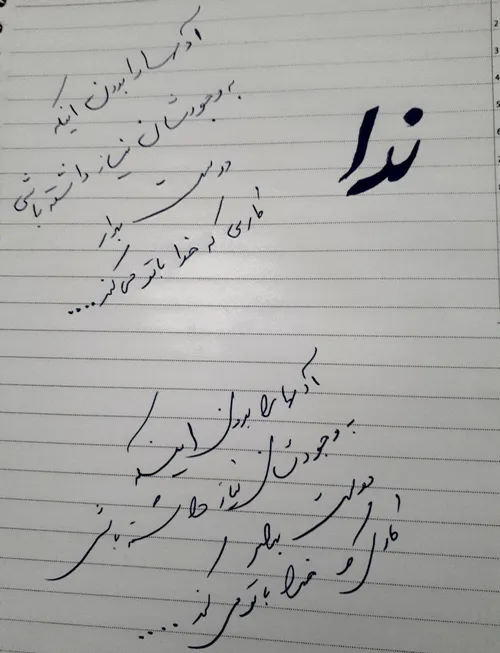 آدمها را بدون اینکه
به وجودشان نیاز داشته باشی
دوست بدار
کاری که خدا با تو می‌کند....
ندا
آدمها را بدون اینکه
به وجودشان نیاز داشته باشی
دوست بدار
کاری که خدا با تو می‌کند....